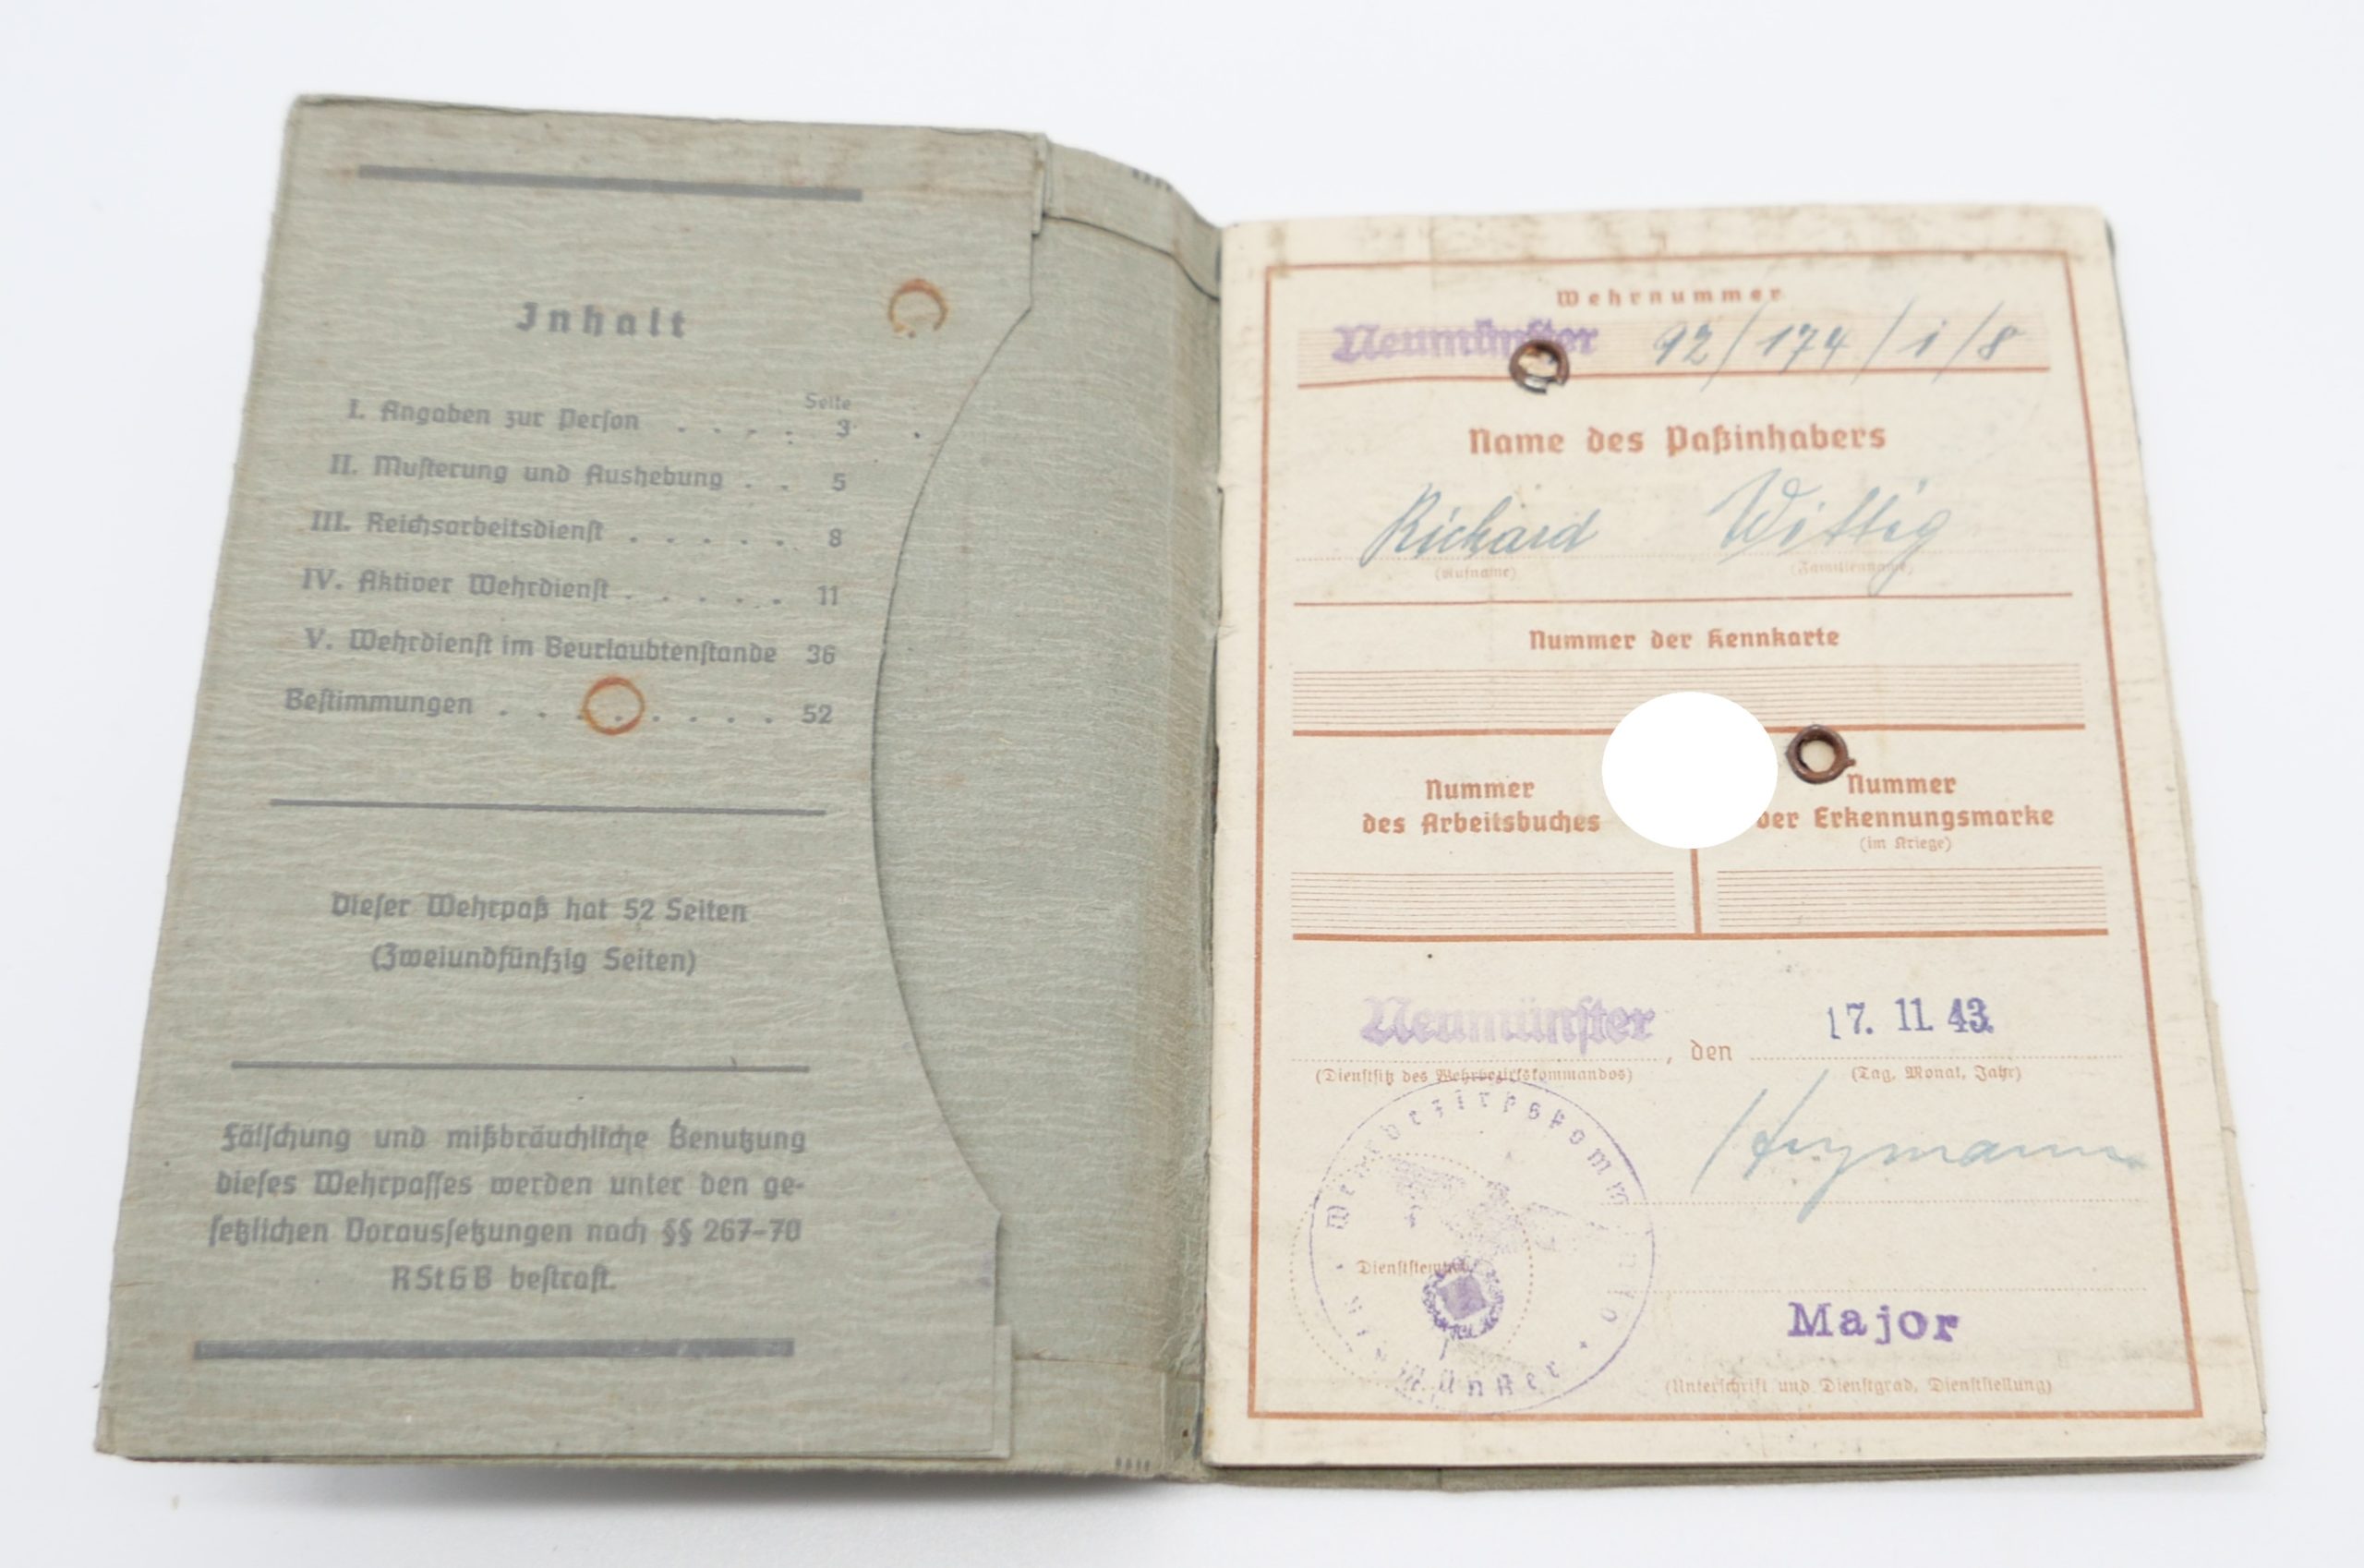 Inhalt
Seite
I. Angaben zur Person . . . . 3
II. Musterung und Aushebung . . 5
III. Reichsarbeitsdienst . . . . . 8
IV. Aktiver Wehrdienst . . . . . 11
V. Wehrdienst im Beurlaubtenstande 36
Bestimmungen . . . . . . . 52
Dieser Wehrpaß hat 52 Seiten
(Zweiundfünfzig Seiten)
Fälschung und mißbräuchliche Benutzung
dieses Wehrpasses werden unter den ge-
setzlichen Voraussetzungen nach §§ 267–70
RStGB bestraft.
Wehrnummer
Neumünster 92/174/1/8
Name des Paßinhabers
Richard Wittig
(Rufname) (Familienname)
Nummer der Kennkarte
Nummer
des Arbeitsbuches
Nummer
der Erkennungsmarke
(im Kriege)
Neumünster, den 17. 11. 43.
(Dienstsitz des Wehrbezirkskommandos) (Tag, Monat, Jahr)
Wehrbezirkskommando
Neumünster
Dienststempel
Major
(Unterschrift und Dienstgrad, Dienststellung)